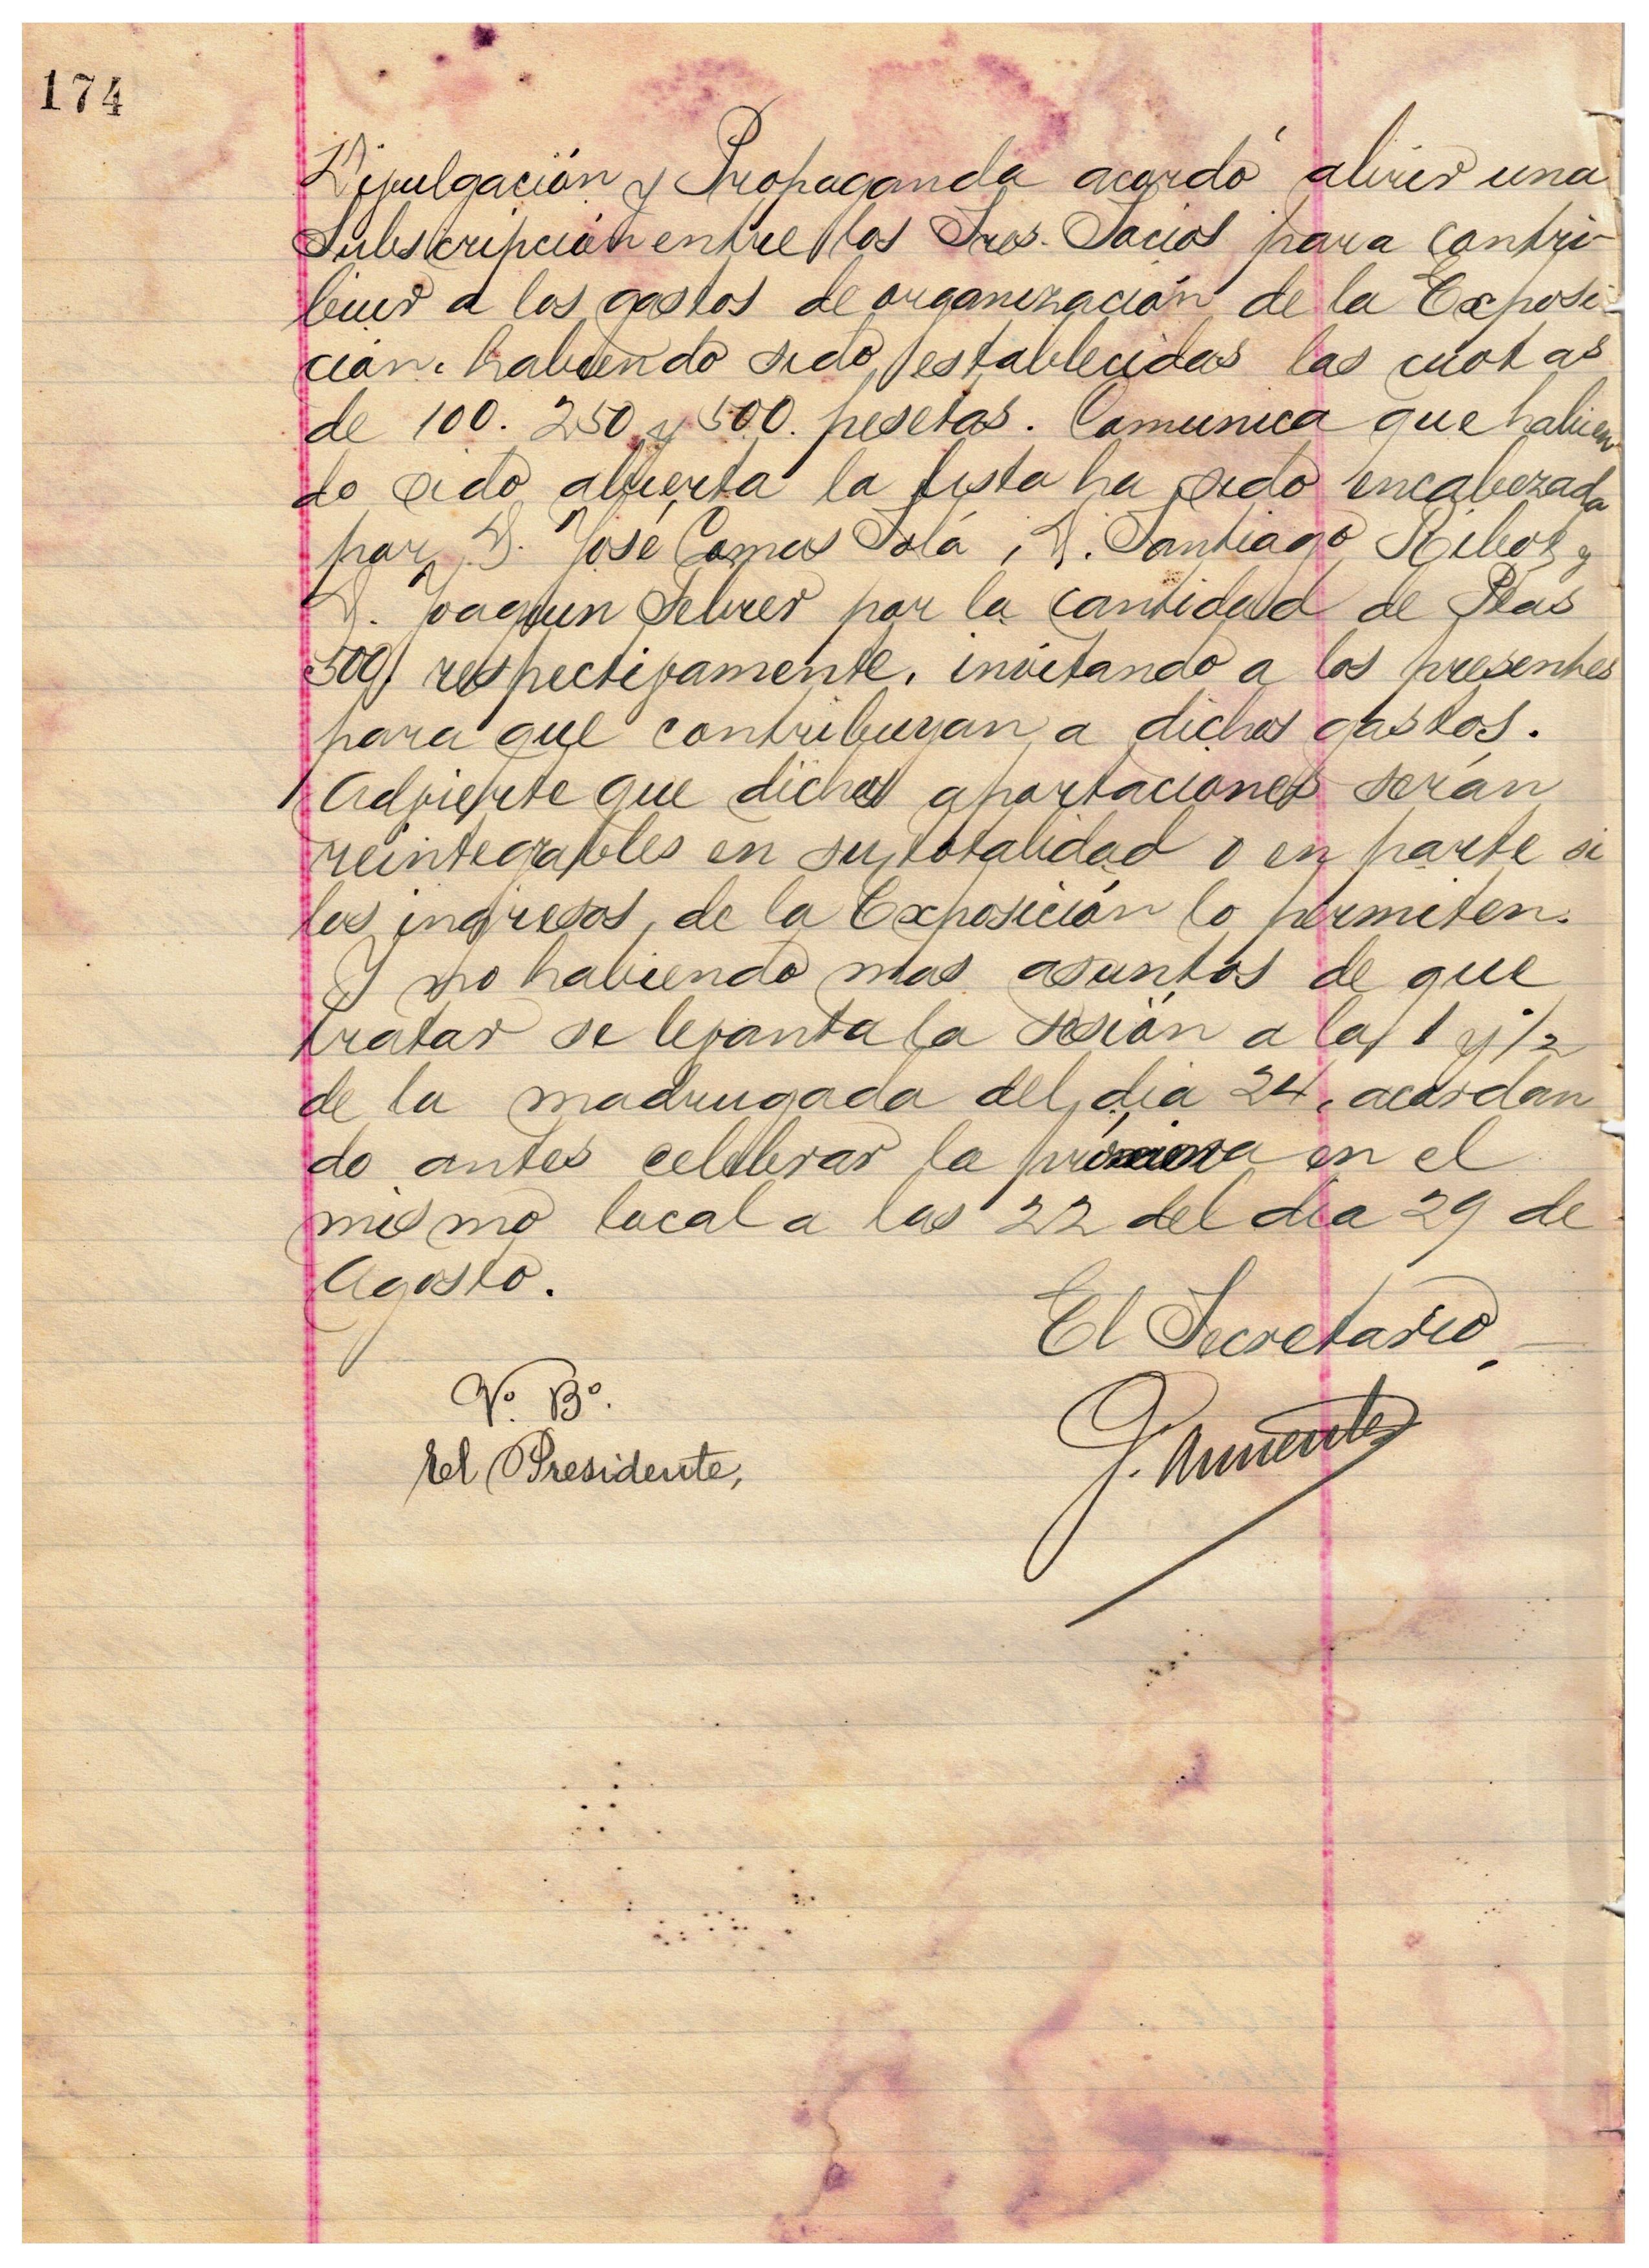 174
Divulgación y Propaganda acordó abrir una
Subscripción entre los Sres. Socios para contri-
buir a los gastos de organización de la Exposi-
ción. habiendo sido establecidas las cuotas
de 100. 250 y 500. pesetas. Comunica que habien
do sido abierta la lista ha sido encabezada
por D. José Comas Solá, D. Santiago Ribot y
D. Joaquin Febrer por la cantidad de Ptas
500, respectivamente, invitando a los presentes
para que contribuyan a dichos gastos.
Advierte que dichas aportaciones serán
reintegrables en su totalidad o en parte si
los ingresos de la Exposición lo permiten.
Y no habiendo mas asuntos de que
tratar se levanta la sesión a la 1 y 1/2
de la madrugada del dia 24, acordan
do antes celebrar la en el
mismo local a las 22 del dia 29 de
Agosto.
El Secretario,
Vº. Bº.
El Presidente,